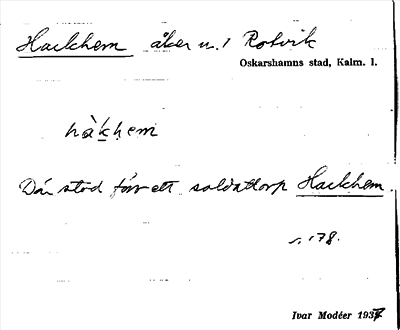 Hackhem åker n. 1 Rotvik
Oskarshamns stad, Kalm. l.
hàkhem
Där stod förr ett soldattorp Hackhem.
s. 178.
Ivar Modéer 1937